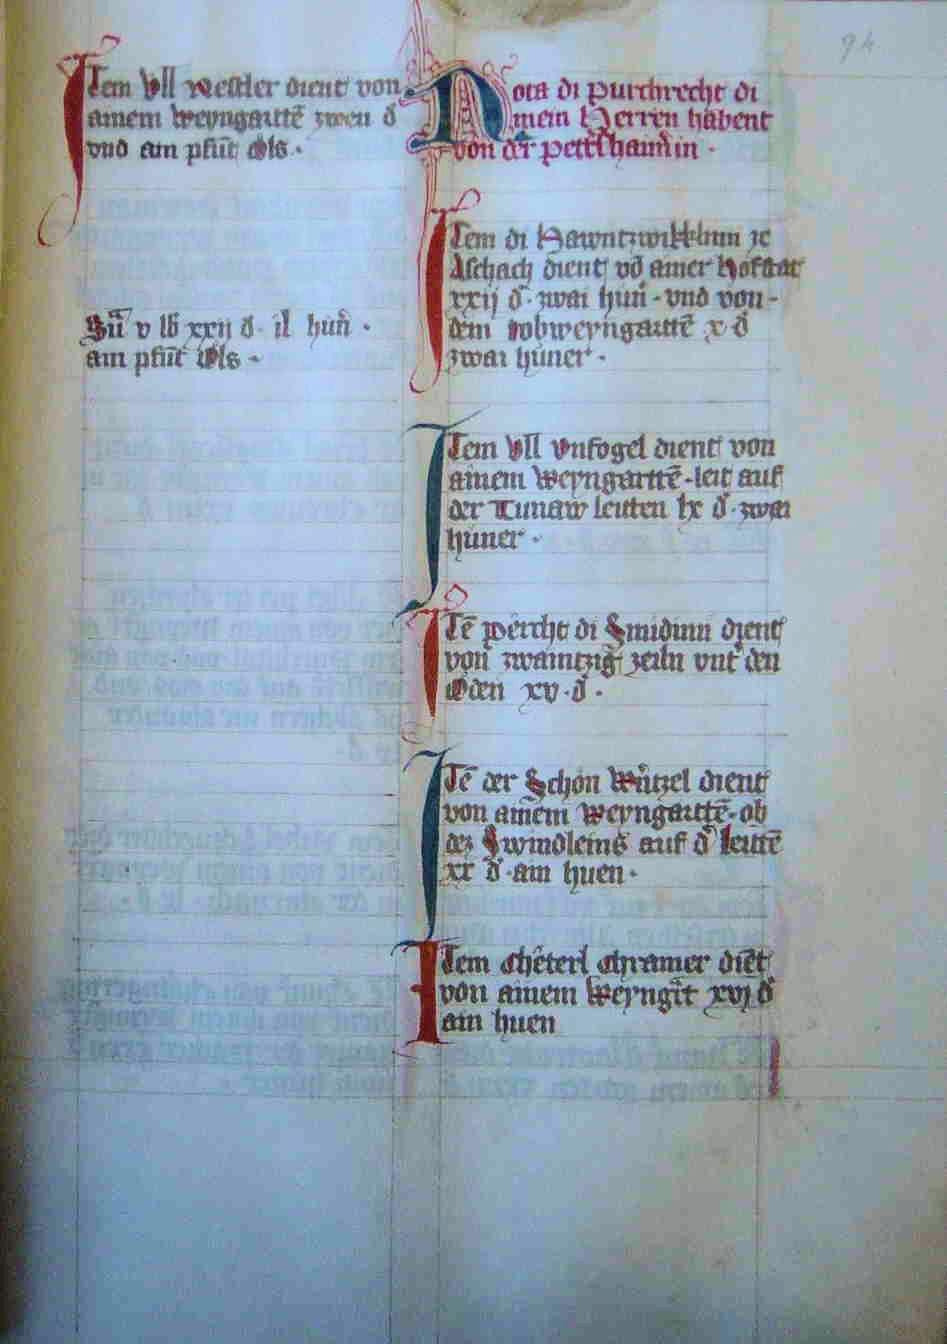 94
Item Ull Nestler dient von
ainem weyngarttē zwen d
vnd ain pfūt Öls ·
Sūa v lb xxij d · il hūn ·
ain pfūt Öls ·
Nota di Purchrecht di
mein Herren habent
von der
Item di Hawntzwikklinn ze
Aschach dient vō ainer Hofstat
xxij d · zwai hūn · vnd von ·
dem weyngarttē x · d
zwai hüner ·
Item Ull Vnfogel dient von
ainem weyngarttē · leit auf
der Tunaw leitten lx d · zwai
hüner ·
Itē Percht di Smidinn dient
von zwaintzig zeiln vnt den
Öden xv · d ·
Itē der Schön Wūtzel dient
von ainem weyngarttē · ob
dez Swindleins auf d leitē
xx d · ain huen ·
Item Chēterl Chramer diēt
von ainem weyngīt xvj d
ain huen